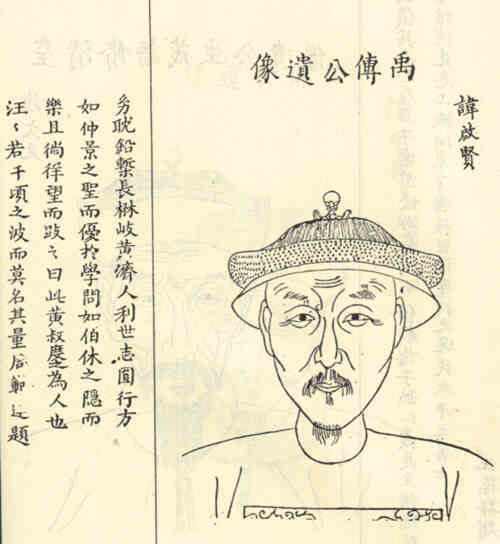 禹傳公遺像
諱啟賢
幼耽鉛槧長楙岐黃濟人利世志圓行方
如仲景之聖而優於學問如伯休之隱而
樂且徜徉望而跂之曰此黃叔度之為人也
汪々若千頃之波而莫名其量 題